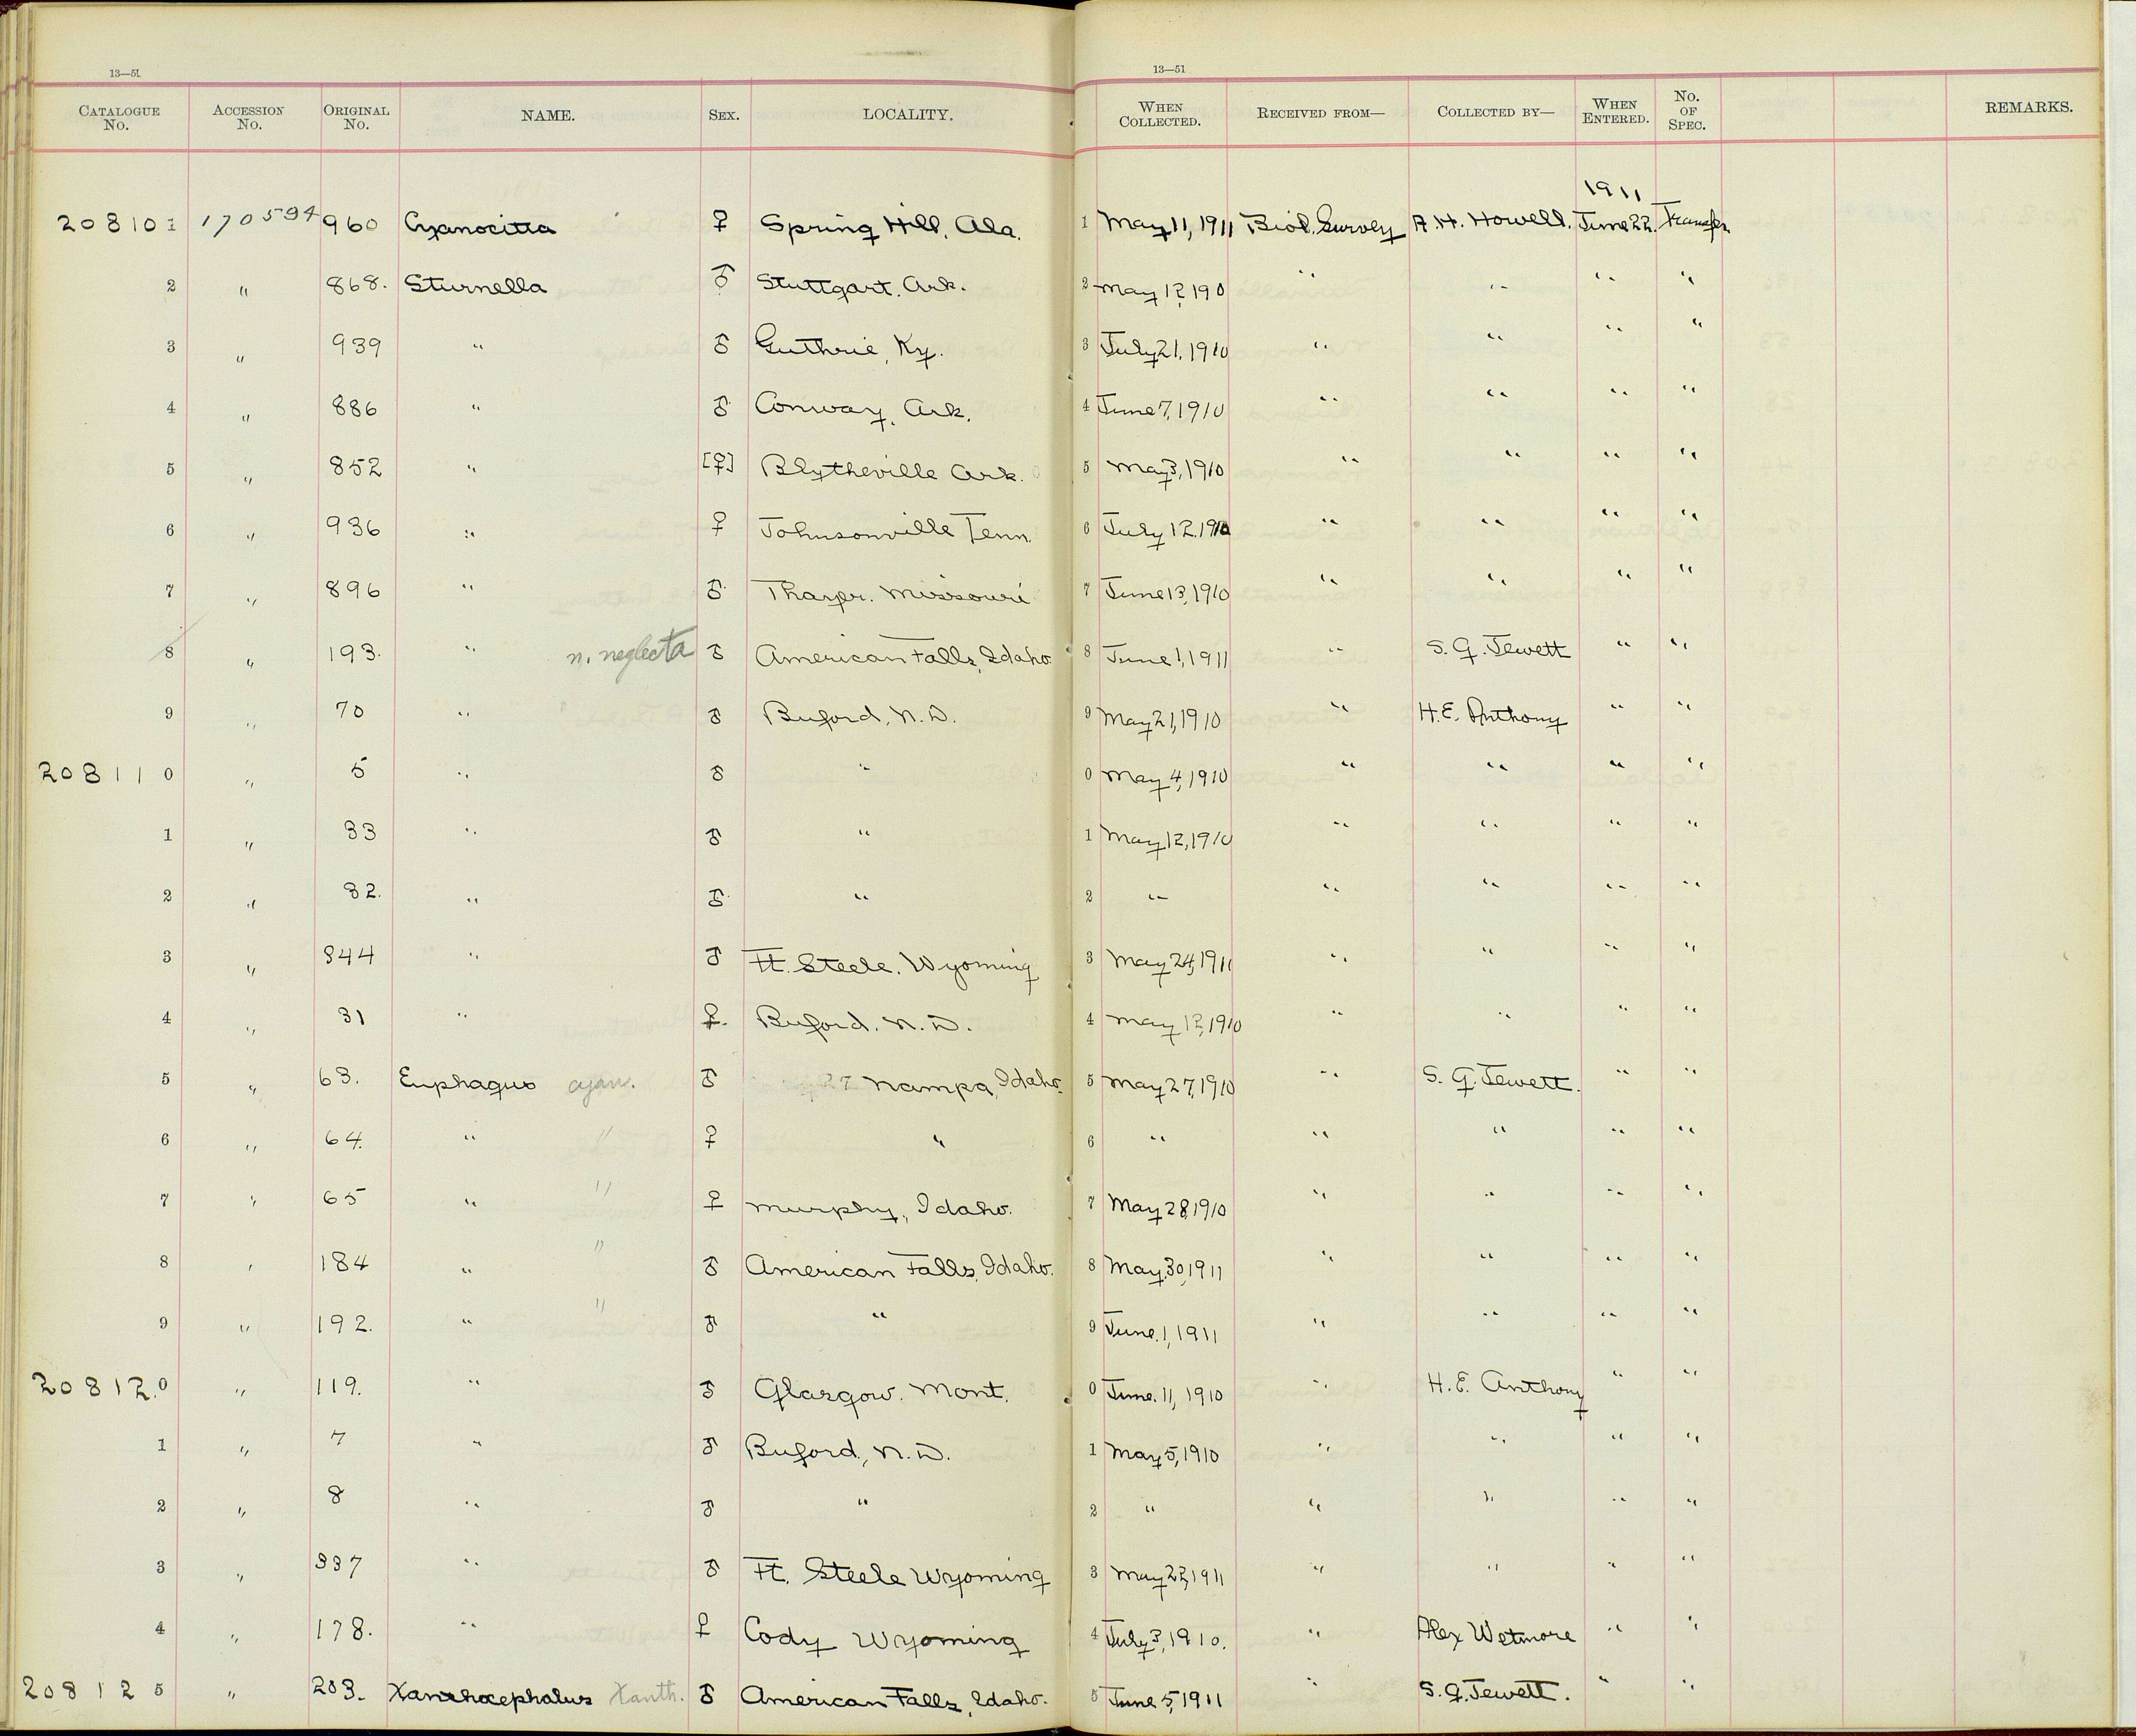 13—51 13—51
CATALOGUE No. ACCESSION No. ORIGINAL No. NAME. SEX. LOCALITY. WHEN COLLECTED. RECEIVED FROM— COLLECTED BY— WHEN ENTERED. No. OF SPEC. REMARKS.
1911
208101 170594 960 Cyanocitta ♀ Spring Hill, Ala. 1 May 11, 1911 Biol. Survey A. H. Howell. June 22. Transfer
2 " 868. Sturnella ♂ Stuttgart. Ark. 2 May 12, 190 " " " "
3 " 939 " ♂ Guthrie, Ky. 3 July 21, 1910 " " " "
4 " 886 " ♂ Conway, Ark. 4 June 7, 1910 " " " "
5 " 852 " [♀] Blytheville Ark. 5 May 3, 1910 " " " "
6 " 936 " ♀ Johnsonville Tenn. 6 July 12. 1910 " " " "
7 " 896 " ♂ Missouri 7 June 13, 1910 " " " "
8 " 193. " n. neglecta ♂ American Falls, Idaho. 8 June 1, 1911 " S. G. Jewett " "
9 " 70 " ♂ Buford, N. D. 9 May 21, 1910 " H. E. Anthony " "
208110 " 5 " ♂ " 0 May 4, 1910 " " " "
1 " 33 " ♂ " 1 May 12, 1910 " " " "
2 " 32. " ♂ " 2 " " " " "
3 " 344 " ♂ Ft. Steele. Wyoming 3 May 24, 1911 " " " "
4 " 31 " ♀. Buford. N. D. 4 May 12, 1910 " " " "
5 " 63. Euphagus cyan. ♂ Nampa, Idaho. 5 May 27, 1910 " S. G. Jewett. " "
6 " 64. " " ♀ " 6 " " " " "
7 " 65 " " ♀ Murphy, Idaho. 7 May 28, 1910 " " " "
8 " 184 " " ♂ American Falls, Idaho. 8 May. 30, 1911 " " " "
9 " 192. " " ♂ " 9 June. 1, 1911 " " " "
208120 " 119. " ♂ Glasgow. Mont. 0 June. 11, 1910 " H. E. Anthony " "
1 " 7 " ♂ Buford, N. D. 1 May 5, 1910 " " " "
2 " 8 " ♂ " 2 " " " " "
3 " 337 " ♂ Ft. Steele Wyoming 3 May 22, 1911 " " " "
4 " 178. " ♀ Cody Wyoming 4 July 3, 1910. " Alex Wetmore " "
208125 " 203. Xanthocephalus Xanth. ♂ American Falls, Idaho. 5 June 5, 1911 " S. G. Jewett. " "